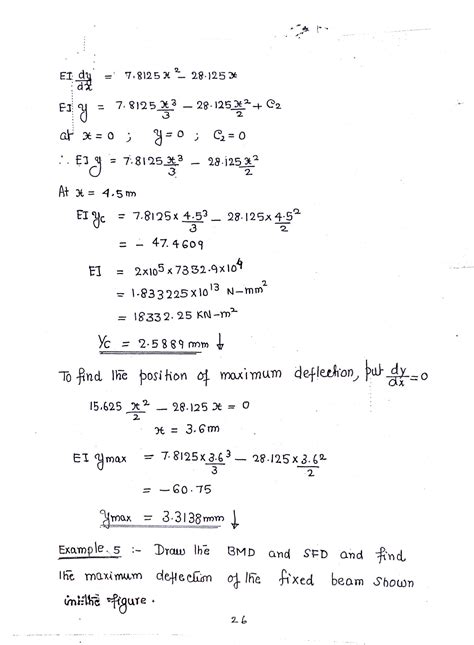 EI dy/dx = 7.8125x² - 28.125x
EI y = 7.8125 x³/3 - 28.125 x²/2 + C₂
at x = 0 ; y = 0 ; C₂ = 0
∴ EI y = 7.8125 x³/3 - 28.125 x²/2
At x = 4.5m
EI yc = 7.8125 × 4.5³/3 - 28.125 × 4.5²/2
= - 47.4609
EI = 2×10⁵ × 7332.9×10⁴
= 1.833225×10¹³ N-mm²
= 18332.25 KN-m²
Yc = 2.5889 mm ↓
To find the position of maximum deflection, put dy/dx = 0
15.625 x²/2 - 28.125 x = 0
x = 3.6m
EI ymax = 7.8125 × 3.6³/3 - 28.125 × 3.6²/2
= - 60.75
ymax = 3.3138mm ↓
Example.5 :- Draw the BMD and SFD and find
the maximum deflection of the fixed beam shown
in the figure.
26